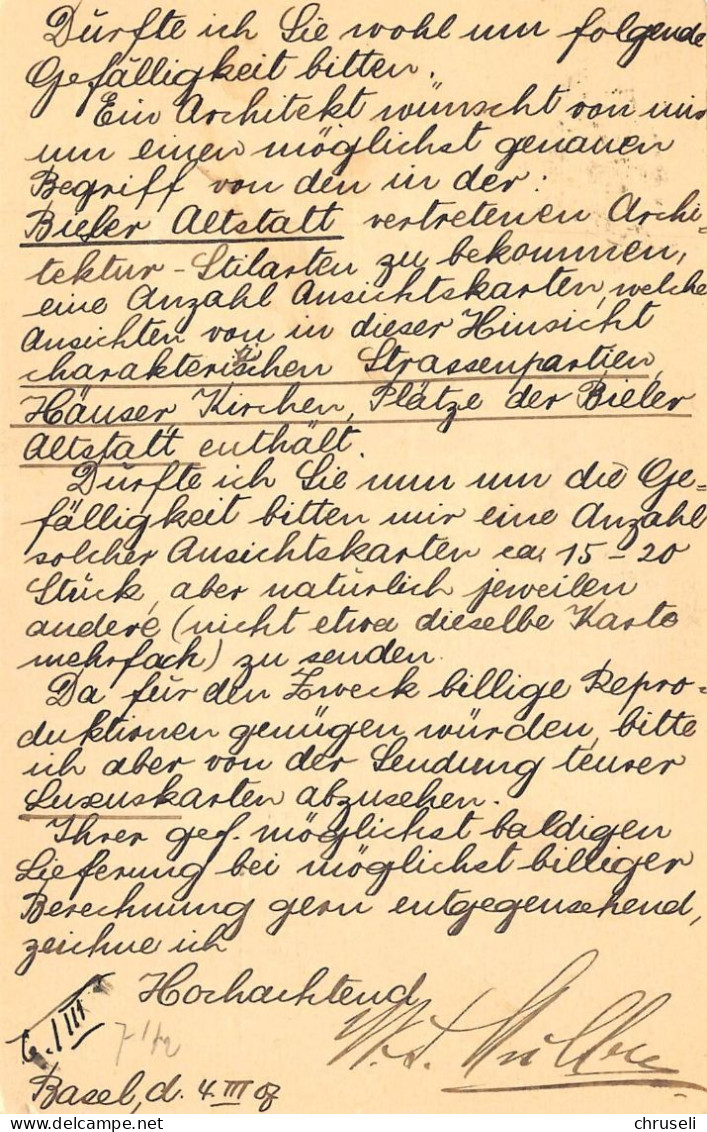 Dürfte ich Sie wohl um folgende
Gefälligkeit bitten.
Ein Architekt wünscht von mir
um einen möglichst genauen
Begriff von den in der:
Bieler Altstatt vertretenen Archi-
tektur-Stilarten zu bekommen,
eine Anzahl Ansichtskarten, welche
Ansichten von in dieser Hinsicht
charakterischen Strassenpartien,
Häuser, Kirchen, Plätze der Bieler
Altstatt enthält.
Dürfte ich Sie nun um die Ge=
fälligkeit bitten mir eine Anzahl
solcher Ansichtskarten ca. 15-20
Stück, aber natürlich jeweilen
andere (nicht etwa dieselbe Karte
mehrfach) zu senden.
Da für den Zweck billige Repro=
duktionen genügen würden, bitte
ich aber von der Sendung teurer
Luxuskarten abzusehen.
Ihrer gef. möglichst baldigen
Lieferung bei möglichst billiger
Berechnung gern entgegensehend,
zeichne ich
Hochachtend
6./III
Basel, d. 4. III 07
chruseli